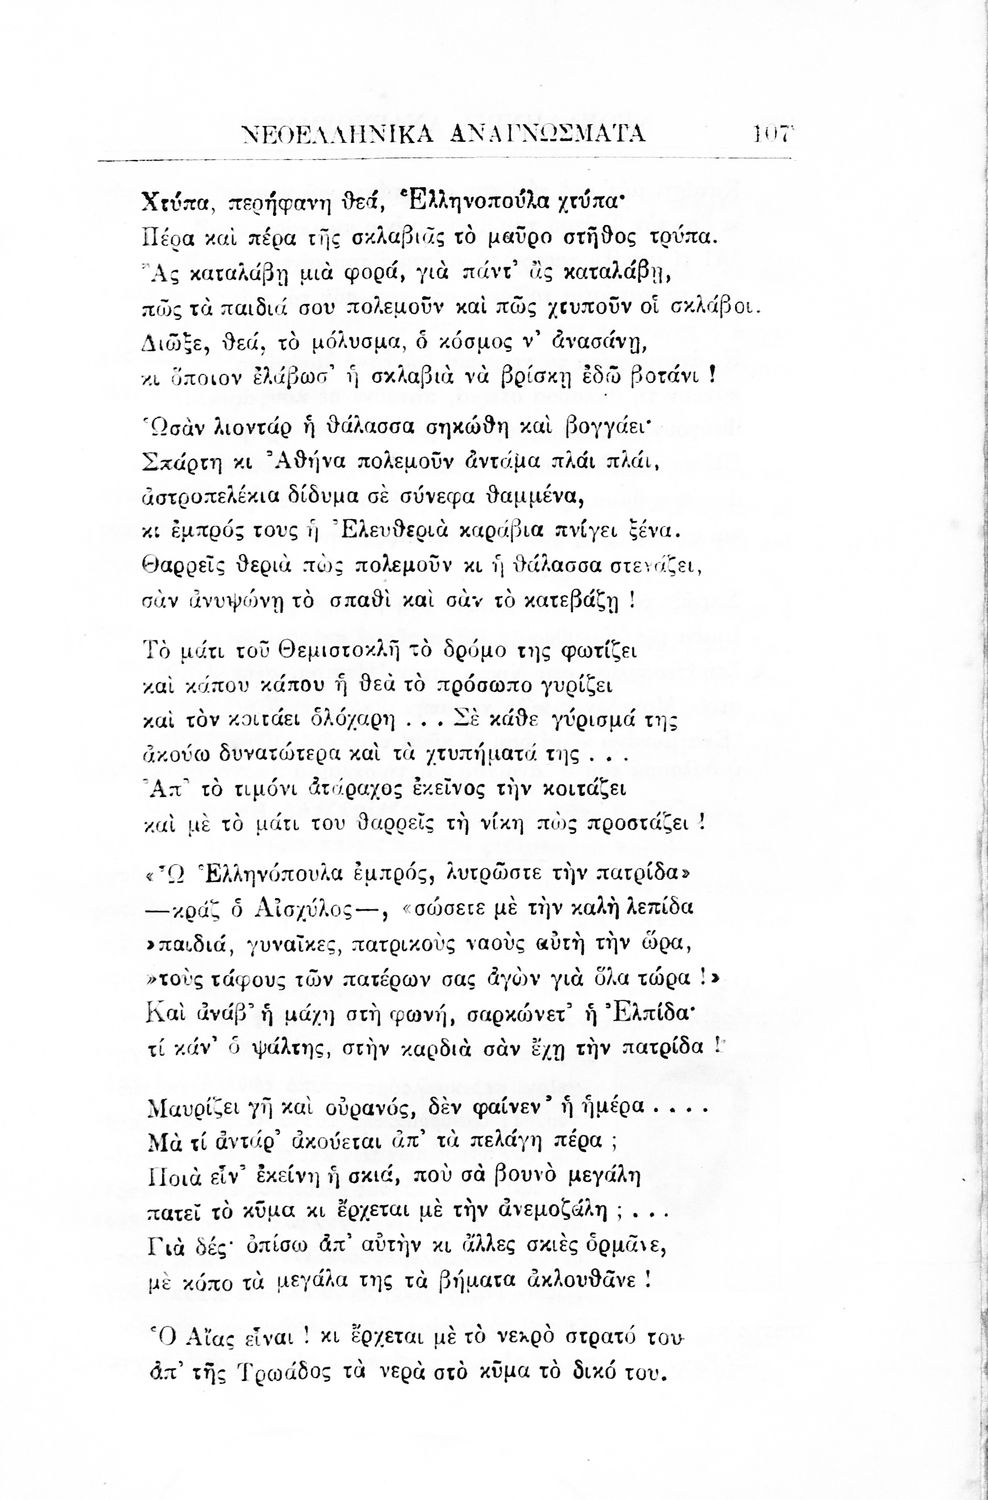 ΝΕΟΕΛΛΗΝΙΚΑ ΑΝΑΓΝΩΣΜΑΤΑ 107
Χτύπα, περήφανη θεά, Ἑλληνοπούλα χτύπα·
Πέρα καὶ πέρα τῆς σκλαβιᾶς τὸ μαῦρο στῆθος τρύπα.
Ἂς καταλάβῃ μιὰ φορά, γιὰ πάντ᾿ ἂς καταλάβῃ,
πῶς τὰ παιδιά σου πολεμοῦν καὶ πῶς χτυποῦν οἱ σκλάβοι.
Διῶξε, θεά, τὸ μόλυσμα, ὁ κόσμος ν᾿ ἀνασάνῃ,
κι ὅποιον ἐλάβωσ᾿ ἡ σκλαβιὰ νὰ βρίσκῃ ἐδῶ βοτάνι !
Ὡσὰν λιοντάρ ἡ θάλασσα σηκώθη καὶ βογγάει·
Σπάρτη κι Ἀθήνα πολεμοῦν ἀντάμα πλάι πλάι,
ἀστροπελέκια δίδυμα σὲ σύνεφα θαμμένα,
κι ἐμπρός τους ἡ Ἐλευθεριὰ καράβια πνίγει ξένα.
Θαρρεῖς θεριὰ πὼς πολεμοῦν κι ἡ θάλασσα στενάζει,
σὰν ἀνυψώνῃ τὸ σπαθὶ καὶ σὰν τὸ κατεβάζῃ !
Τὸ μάτι τοῦ Θεμιστοκλῆ τὸ δρόμο της φωτίζει
καὶ κάπου κάπου ἡ θεὰ τὸ πρόσωπο γυρίζει
καὶ τὸν κοιτάει ὁλόχαρη . . . Σὲ κάθε γύρισμά της
ἀκούω δυνατώτερα καὶ τὰ χτυπήματά της . . .
Ἀπ᾿ τὸ τιμόνι ἀτάραχος ἐκεῖνος τὴν κοιτάζει
καὶ μὲ τὸ μάτι του θαρρεῖς τὴ νίκη πὼς προστάζει !
«Ὦ Ἑλληνόπουλα ἐμπρός, λυτρῶστε τὴν πατρίδα»
—κράζ ὁ Αἰσχύλος—, «σώσετε μὲ τὴν καλὴ λεπίδα
»παιδιά, γυναῖκες, πατρικοὺς ναοὺς αὐτὴ τὴν ὥρα,
»τοὺς τάφους τῶν πατέρων σας ἀγὼν γιὰ ὅλα τώρα !»
Καὶ ἀνάβ᾿ ἡ μάχη στὴ φωνή, σαρκώνετ᾿ ἡ Ἐλπίδα·
τί κάν᾿ ὁ ψάλτης, στὴν καρδιὰ σὰν ἔχῃ τὴν πατρίδα !
Μαυρίζει γῆ καὶ οὐρανός, δὲν φαίνεν᾿ ἡ ἡμέρα . . . .
Μὰ τί ἀντάρ᾿ ἀκούεται ἀπ᾿ τὰ πελάγη πέρα ;
Ποιὰ εἶν᾿ ἐκείνη ἡ σκιά, ποὺ σὰ βουνὸ μεγάλη
πατεῖ τὸ κῦμα κι ἔρχεται μὲ τὴν ἀνεμοζάλη ; . . .
Γιὰ δές· ὀπίσω ἀπ᾿ αὐτὴν κι ἄλλες σκιὲς ὁρμᾶνε,
μὲ κόπο τὰ μεγάλα της τὰ βήματα ἀκλουθᾶνε !
Ὁ Αἴας εἶναι ! κι ἔρχεται μὲ τὸ νεκρὸ στρατό του
ἀπ᾿ τῆς Τρωάδος τὰ νερὰ στὸ κῦμα τὸ δικό του.